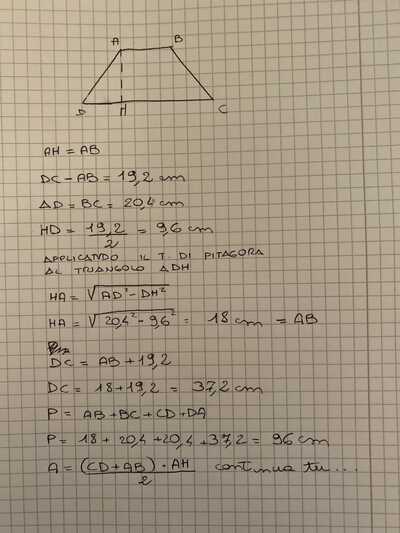 A B
D H C
AH = AB
DC - AB = 19,2 cm
AD = BC = 20,4 cm
HD = 19,2/2 = 9,6 cm
APPLICANDO IL T. DI PITAGORA
AL TRIANGOLO ADH
HA = √(AD² - DH²)
HA = √(20,4² - 9,6²) = 18 cm = AB
DC = AB + 19,2
DC = 18 + 19,2 = 37,2 cm
P = AB + BC + CD + DA
P = 18 + 20,4 + 20,4 + 37,2 = 96 cm
A = (CD + AB) · AH / 2 continua tu...